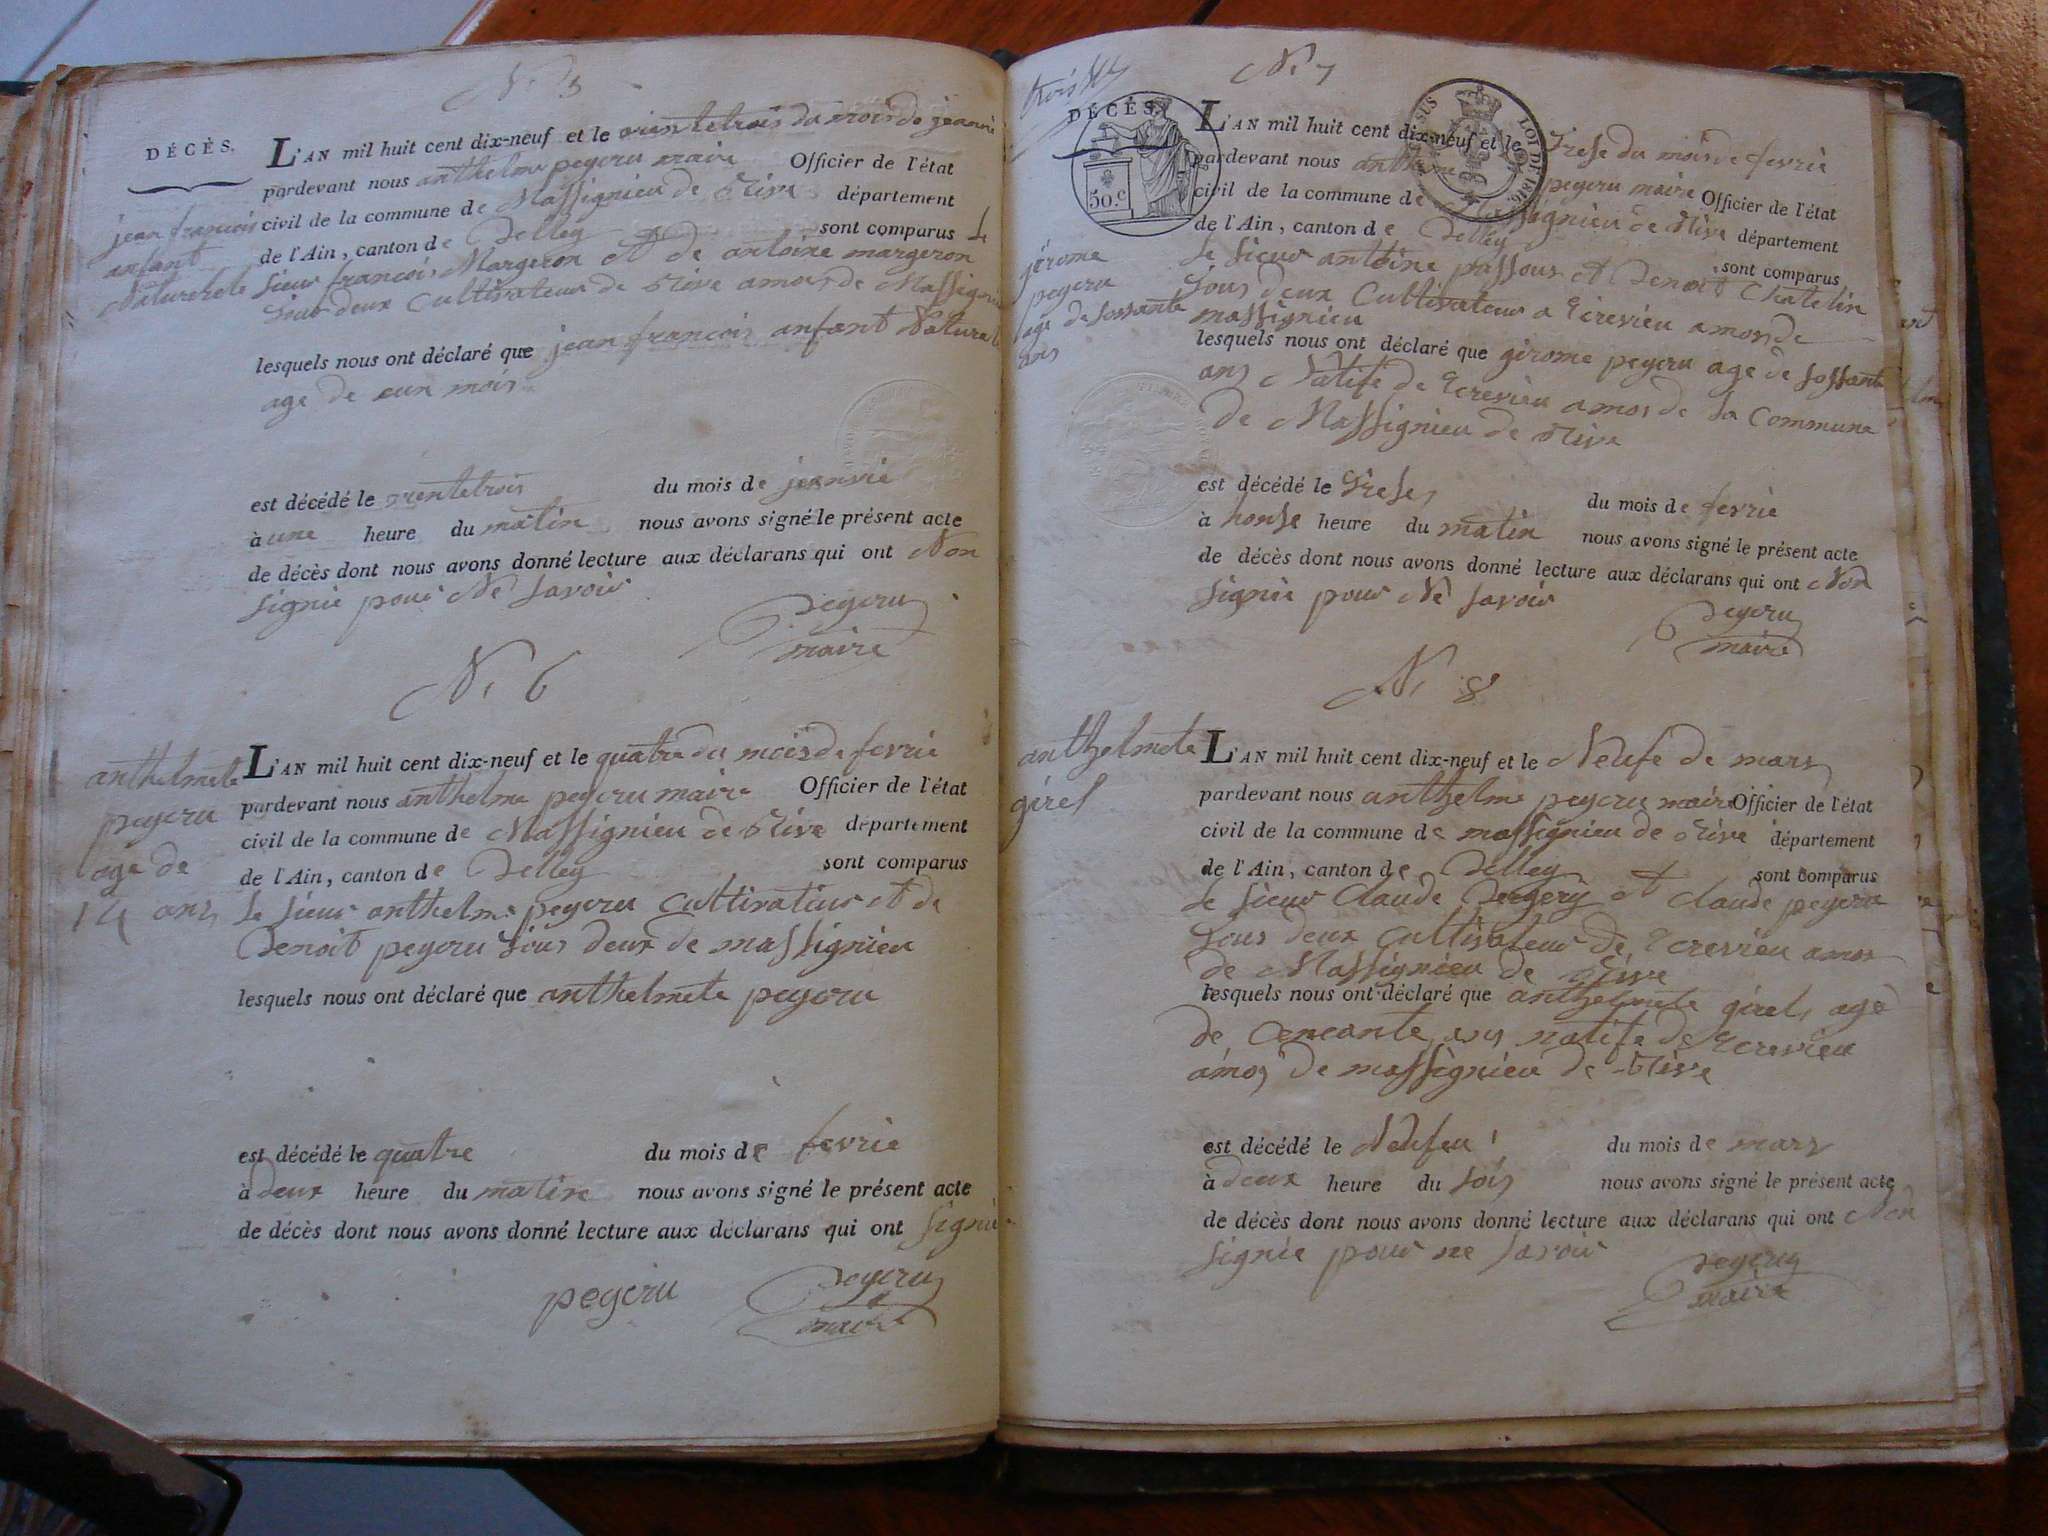 N. 5
DÉCÈS.
L'AN mil huit cent dix-neuf et le vientetrois du mois de jeanvié
pardevant nous anthelme peyeru maire Officier de l'état
civil de la commune de Massignieu de Rive département
de l'Ain, canton de Belley sont comparus Le
Sieur francois Margeron et de antoine margeron
tous deux Cultivateur de Rive amos de Massignieu
lesquels nous ont déclaré que jean francois anfant Naturel
age de eun mois
jean francois
anfant
Naturel de
est décédé le vientetrois du mois de jeanvie
à une heure du matin nous avons signé le présent acte
de décès dont nous avons donné lecture aux déclarans qui ont Non
signié pour Ne savoir
peyeru
maire
N. 6
L'AN mil huit cent dix-neuf et le quatre du mois de fevrie
pardevant nous anthelme peyeru maire Officier de l'état
civil de la commune de Massignieu de Rive département
de l'Ain, canton de Belley sont comparus
le sieur anthelme peyeru Cultivateur et de
Benoit peyeru tous deux de massignieu
lesquels nous ont déclaré que anthelmete peyeru
anthelmete
peyeru
age de
14 ans
est décédé le quatre du mois de fevrie
à deux heure du matin nous avons signé le présent acte
de décès dont nous avons donné lecture aux déclarans qui ont signié
peyeru
peyeru
maire
N. 7
DÉCÈS.
50.c
SUS
LOI DE 1816.
L'AN mil huit cent dix-neuf et le Trese du mois de fevrie
pardevant nous anthelme peyeru maire Officier de l'état
civil de la commune de Massignieu de Rive département
de l'Ain, canton de Belley sont comparus
le sieur antoine passour et Benoit Chatelin
tous deux Cultivateur a Ecrevieu amos de
massignieu
lesquels nous ont déclaré que gérome peyeru age de sossante
ans Natife de Ecrevieu amos de la Commune
de Massignieu de Rive
jérome
peyeru
age de sossante
ans
est décédé le Trese du mois de fevrie
à honse heure du matin nous avons signé le présent acte
de décès dont nous avons donné lecture aux déclarans qui ont Non
signié pour Né savoir
peyeru
maire
N. 8
L'AN mil huit cent dix-neuf et le Neufe de mars
pardevant nous anthelme peyeru maire Officier de l'état
civil de la commune de massignieu de Rive département
de l'Ain, canton de Belley sont comparus
le sieur Claude Bergery et claude peyeru
tous deux cultivateur de Ecrevieu amos
de Massignieu de Rive
lesquels nous ont déclaré que anthelmete girel, agé
de cencante ans natife de Ecrevieu
amos de massignieu de Rive
anthelmete
girel
est décédé le Neufeu du mois de mars
à deux heure du soir nous avons signé le présent acte
de décès dont nous avons donné lecture aux déclarans qui ont Non
signié pour ne savoir
peyeru
maire